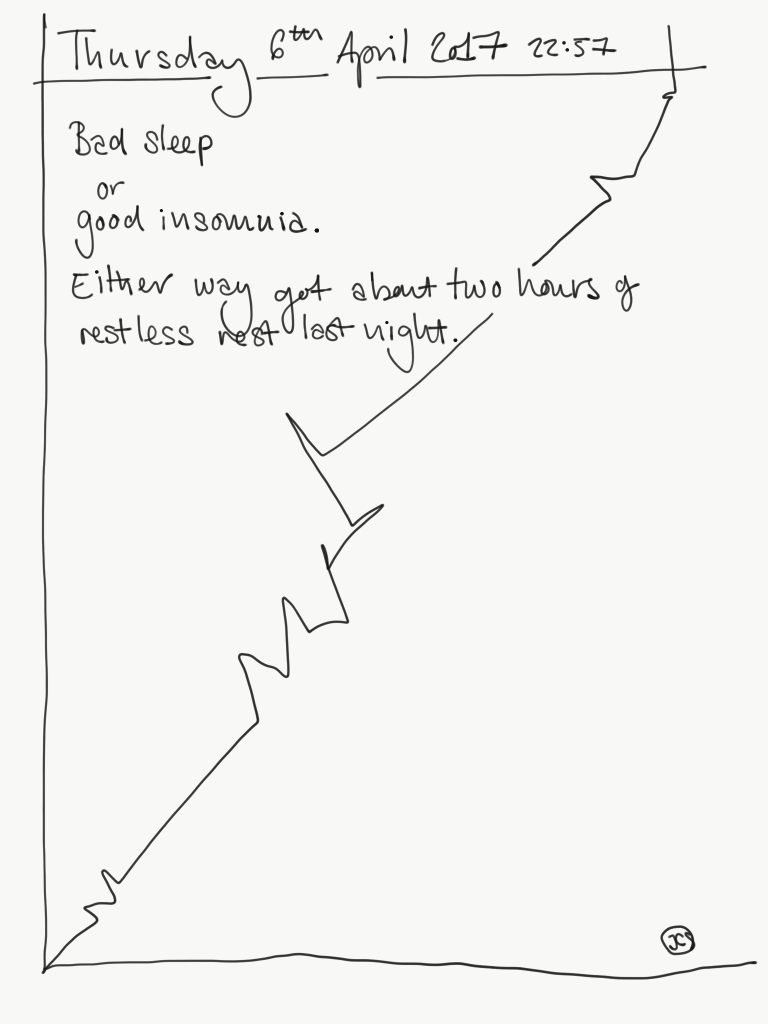 Thursday 6th April 2017 22:57
Bad sleep
or
good insomnia.
Either way got about two hours of
restless rest last night.
JCS